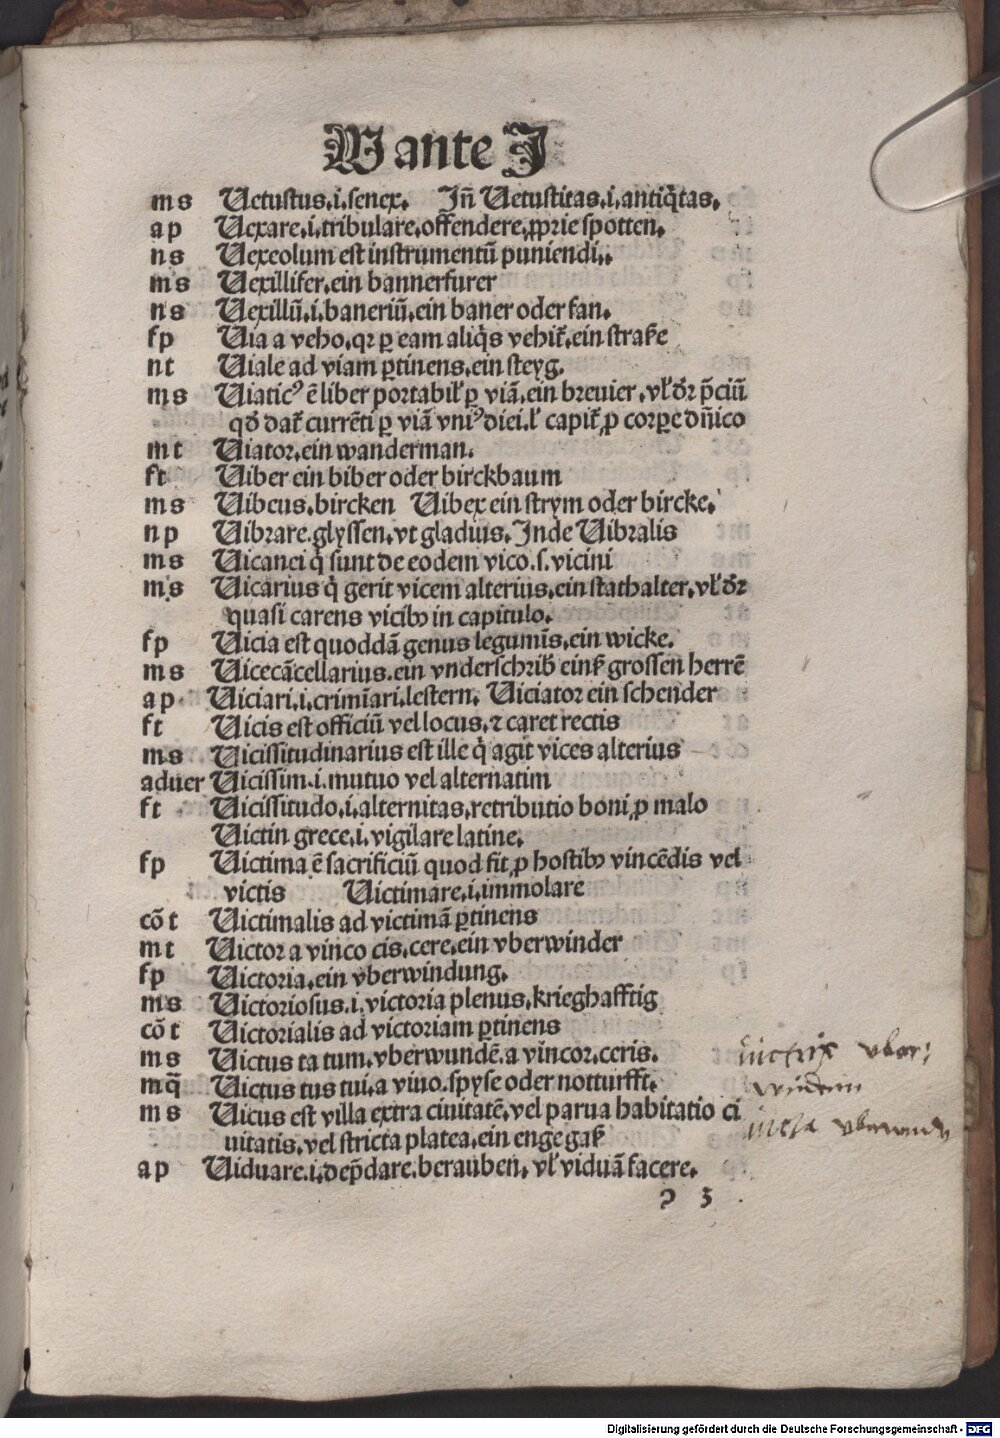 V ante J
m s Uetustus.i.senex. Jñ Uetustitas.i.antiq̃tas.
a p Uexare.i.tribulare.offendere.ꝓprie spotten.
n s Uexeolum est instrumentũ puniendi..
m s Uexillifer.ein bannerfurer
n s Uexillũ.i.baneriũ.ein baner oder fan.
f p Uia a veho.qꝛ ꝑ eam aliq̃s vehit̃.ein straße
n t Uiale ad viam ꝑtinens.ein steyg.
m s Uiaticꝰ ẽ liber portabil' ꝑ viã.ein breuier.vl' dr̃ p̃ciũ
qd̃ dat̃ currẽti ꝑ viã vniꝰ diei.l' capit̃ ꝓ corꝑe dñico
m t Uiator.ein wanderman.
f t Uiber ein biber oder birckbaum
m s Uibeus.bircken Uibex ein strym oder bircke.
n p Uibrare.glyssen.vt gladius.Inde Uibralis
m s Uicanei q̃ sunt de eodem vico.s.vicini
m s Uicarius q̃ gerit vicem alterius.ein stathalter.vl' dr̃
quasi carens vicibꝰ in capitulo.
f p Uicia est quoddã genus legumĩs.ein wicke.
m s Uicecãcellarius.ein vnderschrib̃ einß grossen herrẽ
a p Uiciari.i.crimĩari.lestern. Uiciator ein schender
f t Uicis est officiũ vel locus.⁊ caret rectis
m s Uicissitudinarius est ille q̃ agit vices alterius
aduer Uicissim.i.mutuo vel alternatim
f t Uicissitudo.i.alternitas.retributio boni ꝓ malo
Uictin grece.i.vigilare latine.
f p Uictima ẽ sacrificiũ quod fit ꝓ hostibꝰ vincẽdis vel
victis Uictimare.i.immolare
cõ t Uictimalis ad victimã ꝑtinens
m t Uictor a vinco cis.cere.ein vberwinder
f p Uictoria.ein vberwindung.
m s Uictoriosus.i.victoria plenus.krieghafftig
cõ t Uictorialis ad victoriam ꝑtinens
m s Uictus ta tum.vberwundẽ.a vincor.ceris.
m q̃ Uictus tus tui.a viuo.spyse oder notturfft.
m s Uicus est villa extra ciuitatẽ.vel parua habitatio ci
uitatis.vel stricta platea.ein enge gaß
a p Uiduare.i.dep̃dare.berauben.vl' viduã facere.
ꝛ 3
uictrix vber
winderin
Digitalisierung gefördert durch die Deutsche Forschungsgemeinschaft - DFG